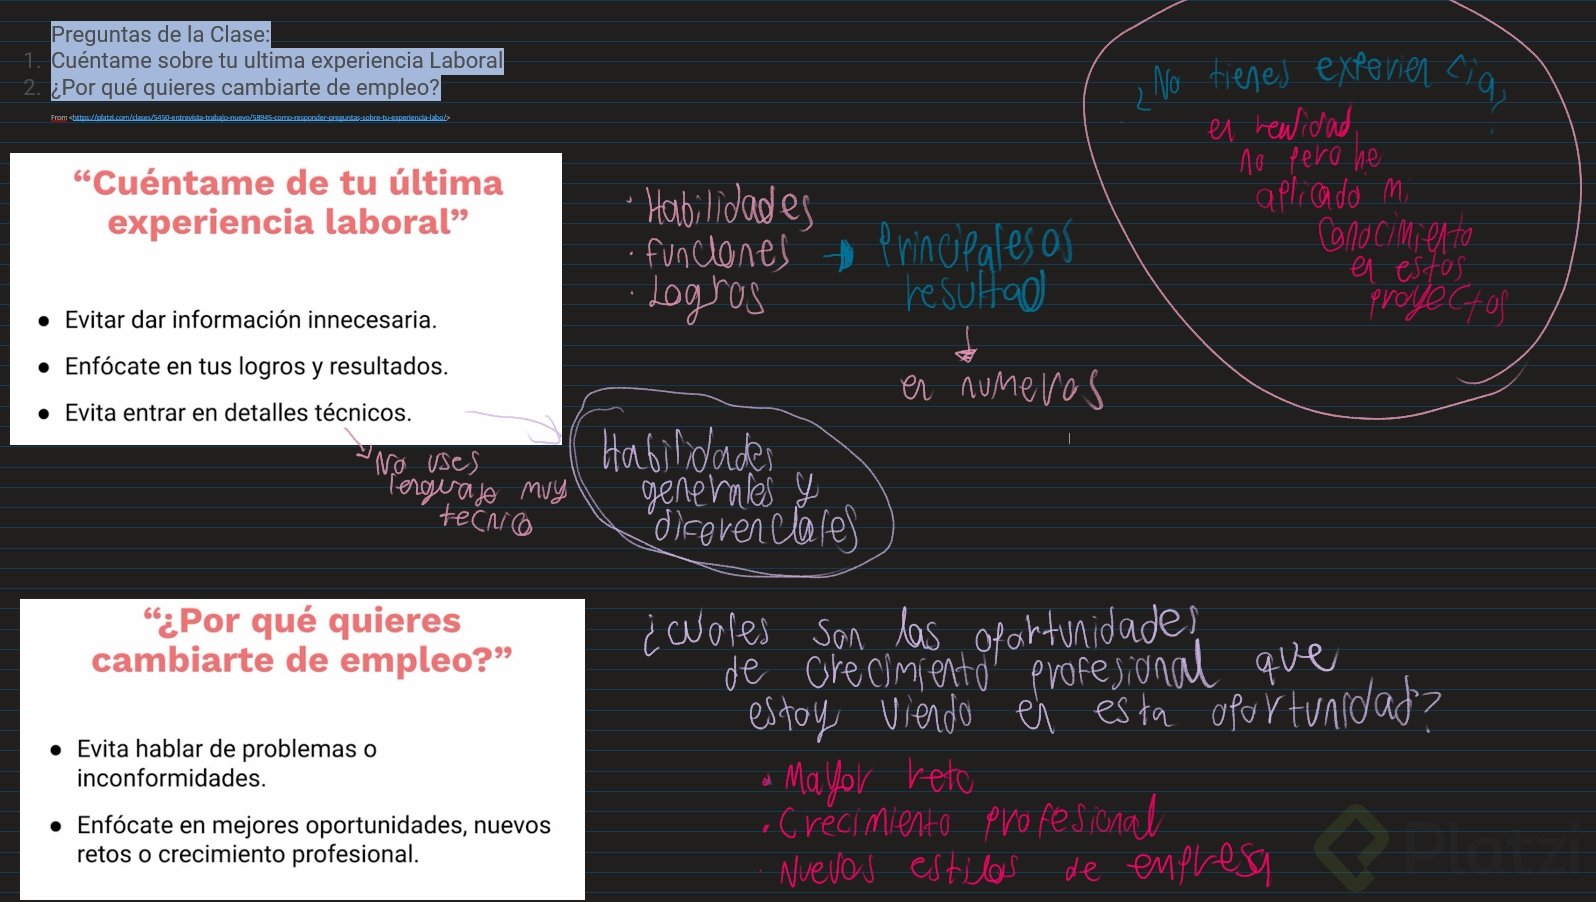 Preguntas de la Clase:
1. Cuéntame sobre tu ultima experiencia Laboral
2. ¿Por qué quieres cambiarte de empleo?
From <https://platzi.com/clases/5450-entrevista-trabajo-nuevo/58945-como-responder-preguntas-sobre-tu-experiencia-labo/>
“Cuéntame de tu última
experiencia laboral”
● Evitar dar información innecesaria.
● Enfócate en tus logros y resultados.
● Evita entrar en detalles técnicos.
No uses
lenguaje muy
tecnico
· Habilidades
· Funciones
· Logros
Principales os
resultad
en numeros
Habilidades
generales y
diferenciales
¿No tienes experiencia?
en realidad
no pero he
aplicado mi
Conocimiento
en estos
proyectos
“¿Por qué quieres
cambiarte de empleo?”
● Evita hablar de problemas o
inconformidades.
● Enfócate en mejores oportunidades, nuevos
retos o crecimiento profesional.
¿cuales son las oportunidades
de crecimiento profesional que
estoy viendo en esta oportunidad?
· Mayor reto
· Crecimiento profesional
· Nuevos estilos de empresa
Platzi